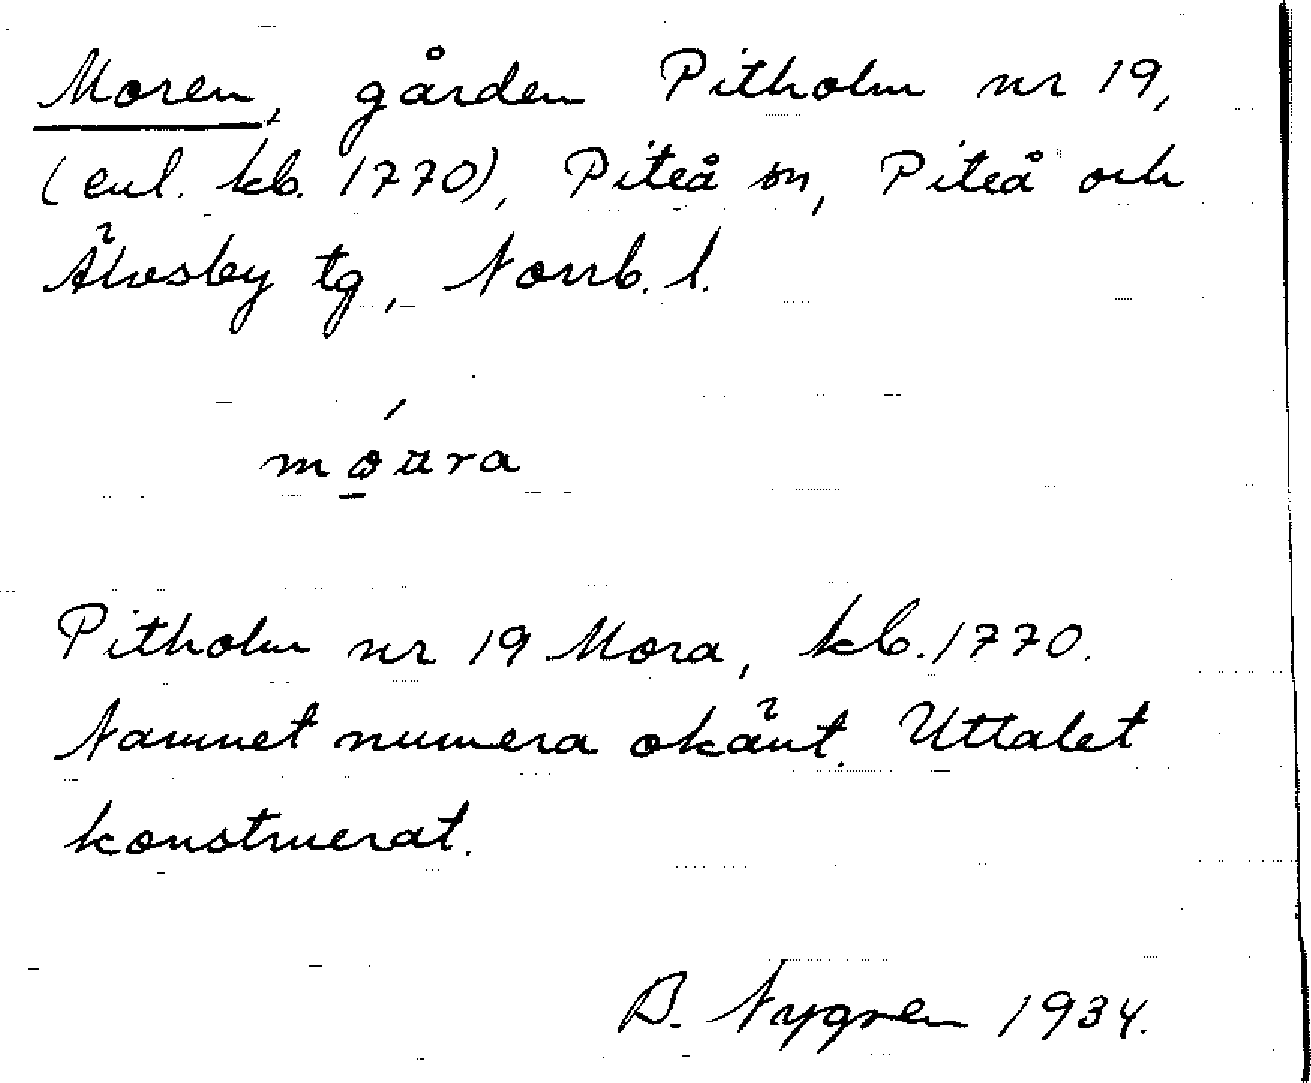 Moren, gården Pitholm nr 19,
(enl. kb. 1770), Piteå sn, Piteå och
Älvsby tg, Norrb. l.
Pitholm nr 19 Mora, kb. 1770.
Namnet numera okänt. Uttalet
konstruerat.
B. Nygren 1934.